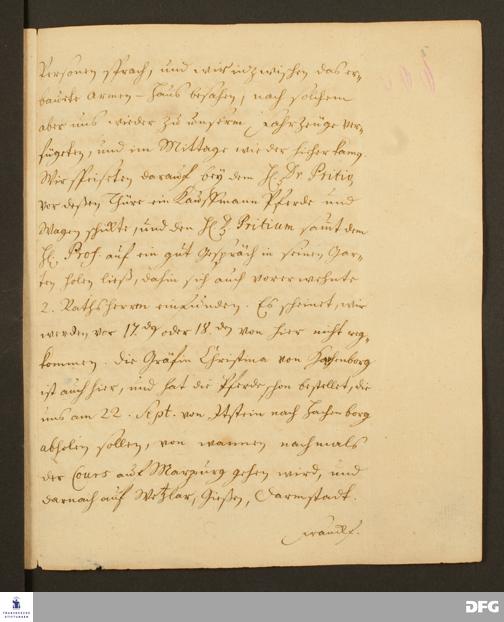 Personen sprach, und wir inzwischen das er-
bauete Armen-Haus besahen, nach solchem
aber uns wieder zu unserm Fahrzeuge ver-
fügeten, und im Mittage wieder hieher kamen.
Wir speiseten darauf bey dem H. Dr. Pritio,
vor deßen Thüre ein Kauffmann Pferde und
Wagen schickte, und den H. D. Pritium samt dem
H. Prof. auf ein gut Gespräch in seinen Gar-
ten holen ließ, dahin sich auch vorerwehnte
2. Rathsherrn einfunden. Es scheinet, wir
werden vor 17. oder 18. von hier nicht weg-
kommen. Die Gräfin Christina von Hachenborg
ist auch hier, und hat die Pferde schon bestellet, die
uns am 22. Sept. von Itstein nach Hachenborg
abholen sollen, von wannen nachmals
der Cours auf Marpurg gehen wird, und
darnach auf Wetzlar, Gießen, Darmstadt.
FRANCKESCHE
STIFTUNGEN
DFG